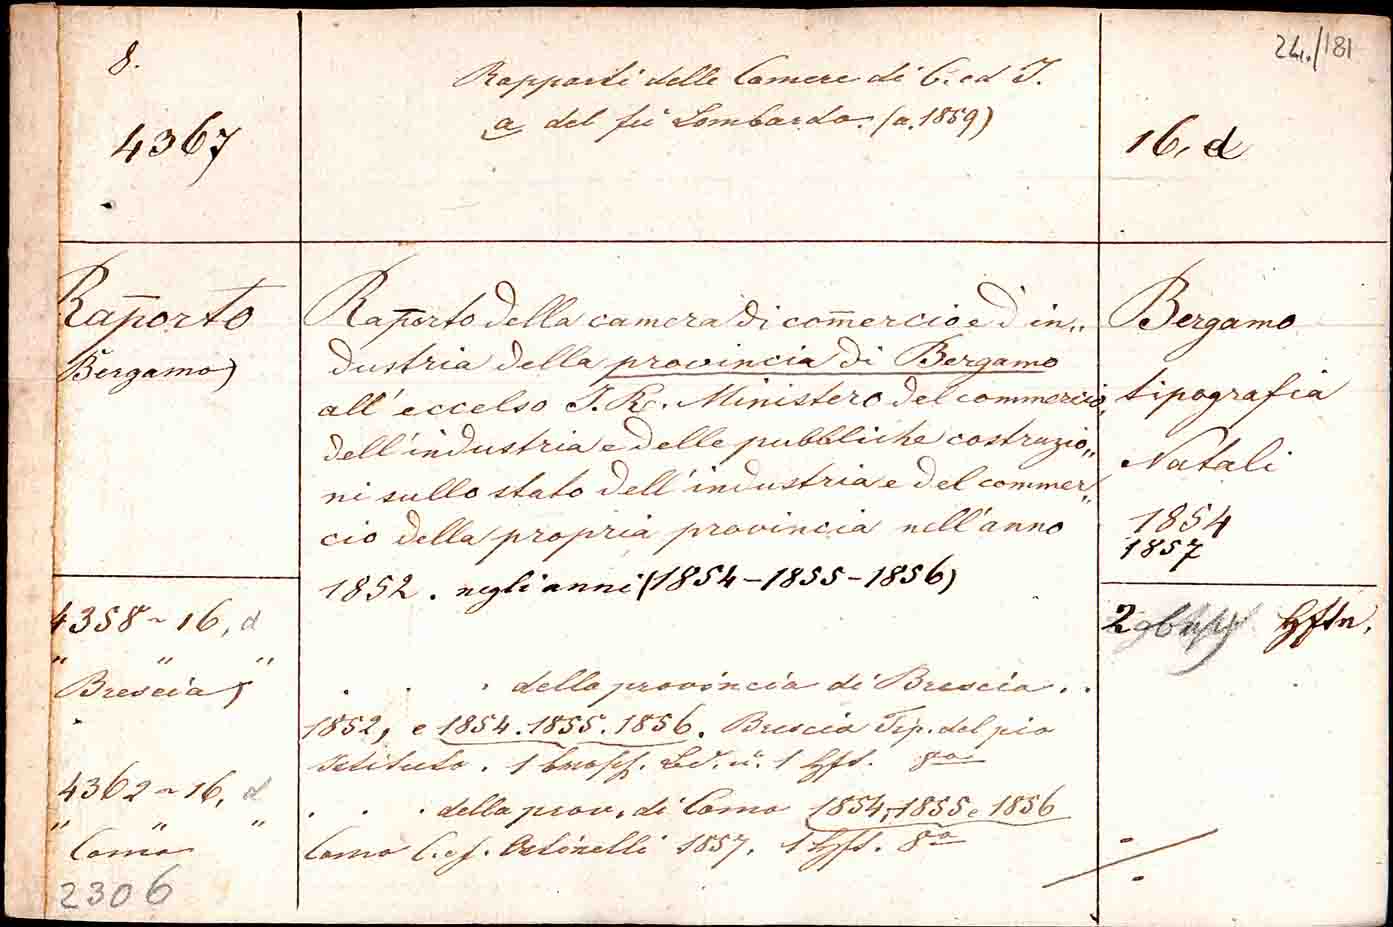 8.
4367
Rapporti delle Camere di C. ed I.
a del fù Lombardo. (a. 1859)
24./181
16, d
Raporto
Bergamo)
Raporto della camera di com̄ercio e d'in„
dustria della provincia di Bergamo
all' eccelso I. R. Ministero del commercio,
dell'industria e delle pubbliche costruzio„
ni sullo stato dell'industria e del commer„
cio della propria provincia nell'anno
1852. negli anni (1854-1855-1856)
Bergamo
tipografia
Natali
1854
1857
2 Hftn.
4358 - 16, d
" " "
Brescia)
. . . della provincia di Brescia . .
1852, e 1854.1855.1856. Brescia Tip. del pio
Istituto. 1 brosch. Bd. u. 1 Hft. 8o
4362 - 16, d
" " "
Como
. . . della prov. di Como 1854, 1855 e 1856
Como C. ef. Ostinelli 1857. 1 Hft. 8o
2306